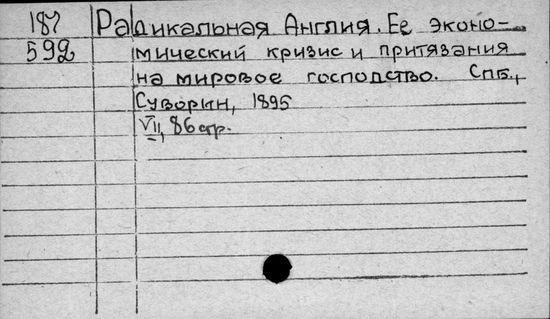 187 Радикальная Англия. Ее эконо-
592 мический кризис и притязания
на мировое господство. Спб.,
Суворин, 1895
VII, 86 стр.